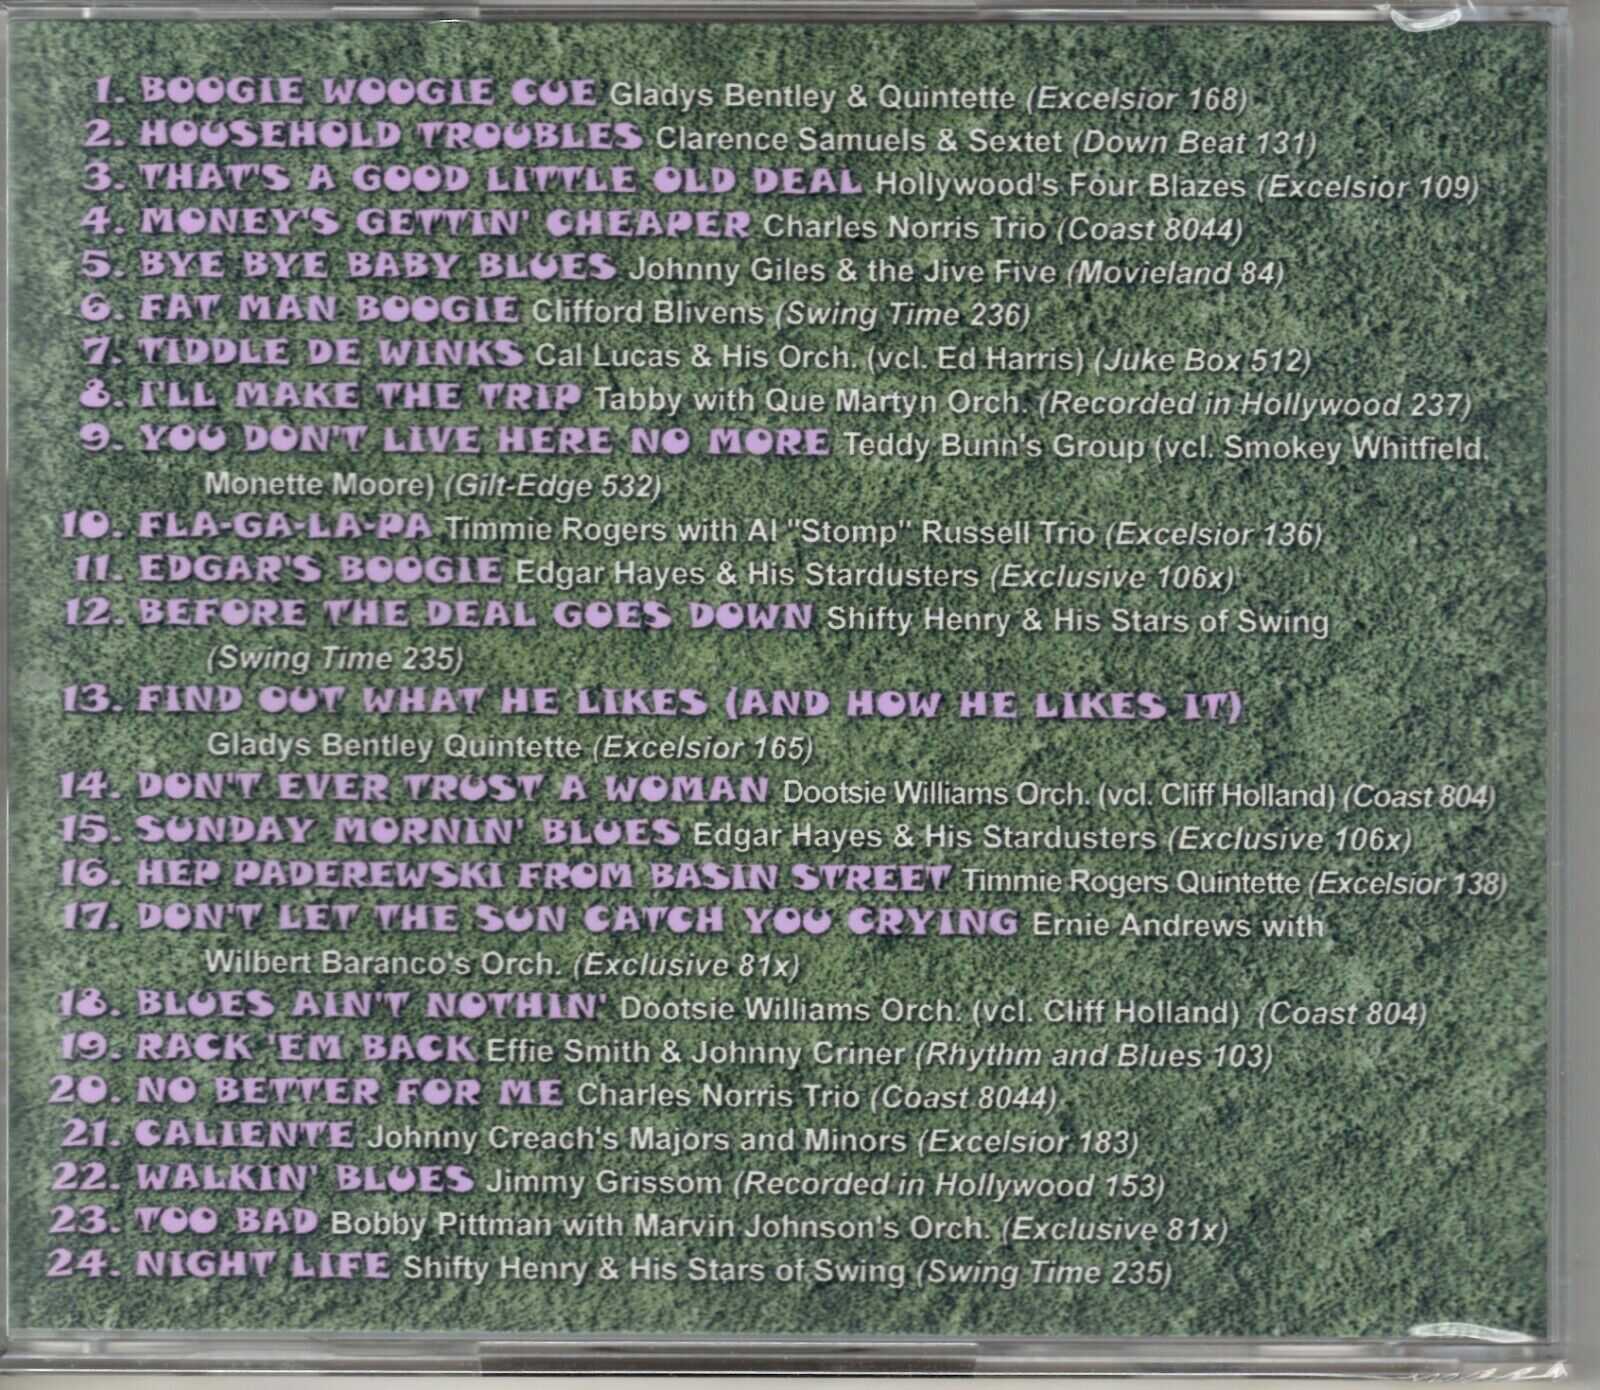 1. BOOGIE WOOGIE CUE Gladys Bentley & Quintette (Excelsior 168)
2. HOUSEHOLD TROUBLES Clarence Samuels & Sextet (Down Beat 131)
3. THAT'S A GOOD LITTLE OLD DEAL Hollywood's Four Blazes (Excelsior 109)
4. MONEY'S GETTIN' CHEAPER Charles Norris Trio (Coast 8044)
5. BYE BYE BABY BLUES Johnny Giles & the Jive Five (Movieland 84)
6. FAT MAN BOOGIE Clifford Blivens (Swing Time 236)
7. TIDDLE DE WINKS Cal Lucas & His Orch. (vcl. Ed Harris) (Juke Box 512)
8. I'LL MAKE THE TRIP Tabby with Que Martyn Orch. (Recorded in Hollywood 237)
9. YOU DON'T LIVE HERE NO MORE Teddy Bunn's Group (vcl. Smokey Whitfield.
Monette Moore) (Gilt-Edge 532)
10. FLA-GA-LA-PA Timmie Rogers with Al "Stomp" Russell Trio (Excelsior 136)
11. EDGAR'S BOOGIE Edgar Hayes & His Stardusters (Exclusive 106x)
12. BEFORE THE DEAL GOES DOWN Shifty Henry & His Stars of Swing
(Swing Time 235)
13. FIND OUT WHAT HE LIKES (AND HOW HE LIKES IT)
Gladys Bentley Quintette (Excelsior 165)
14. DON'T EVER TRUST A WOMAN Dootsie Williams Orch. (vcl. Cliff Holland) (Coast 804)
15. SUNDAY MORNIN' BLUES Edgar Hayes & His Stardusters (Exclusive 106x)
16. HEP PADEREWSKI FROM BASIN STREET Timmie Rogers Quintette (Excelsior 138)
17. DON'T LET THE SUN CATCH YOU CRYING Ernie Andrews with
Wilbert Baranco's Orch. (Exclusive 81x)
18. BLUES AIN'T NOTHIN' Dootsie Williams Orch. (vcl. Cliff Holland) (Coast 804)
19. RACK 'EM BACK Effie Smith & Johnny Criner (Rhythm and Blues 103)
20. NO BETTER FOR ME Charles Norris Trio (Coast 8044)
21. CALIENTE Johnny Creach's Majors and Minors (Excelsior 183)
22. WALKIN' BLUES Jimmy Grissom (Recorded in Hollywood 153)
23. TOO BAD Bobby Pittman with Marvin Johnson's Orch. (Exclusive 81x)
24. NIGHT LIFE Shifty Henry & His Stars of Swing (Swing Time 235)